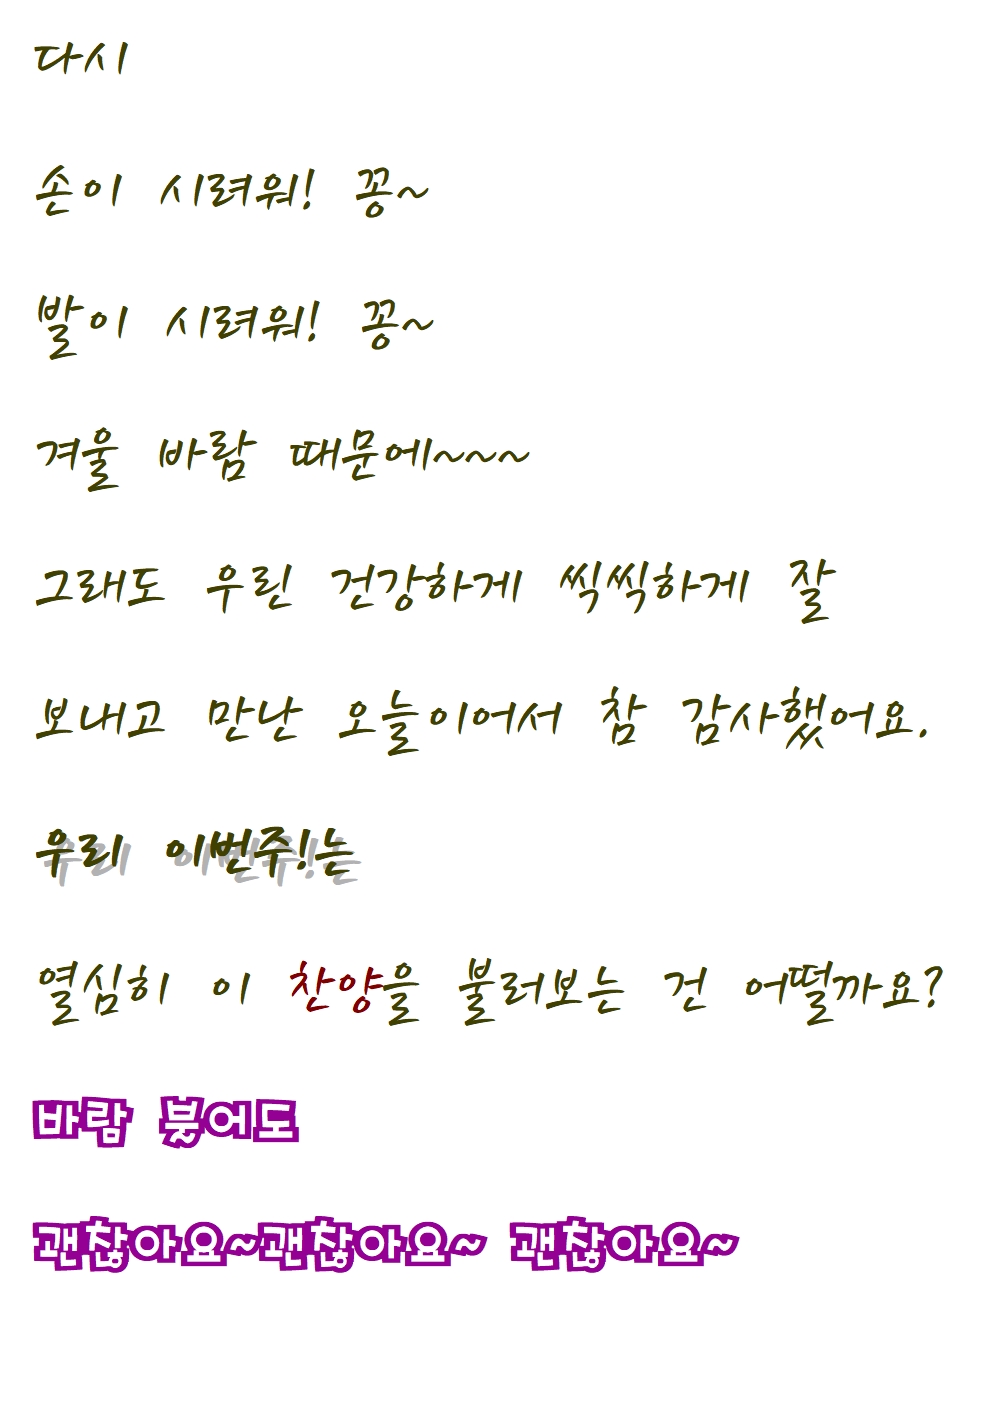 다시
손이 시려워! 꽁~
발이 시려워! 꽁~
겨울 바람 때문에~~~
그래도 우린 건강하게 씩씩하게 잘
보내고 만난 오늘이어서 참 감사했어요.
우리 이번주!는
열심히 이 찬양을 불러보는 건 어떨까요?
바람 불어도
괜찮아요~괜찮아요~ 괜찮아요~